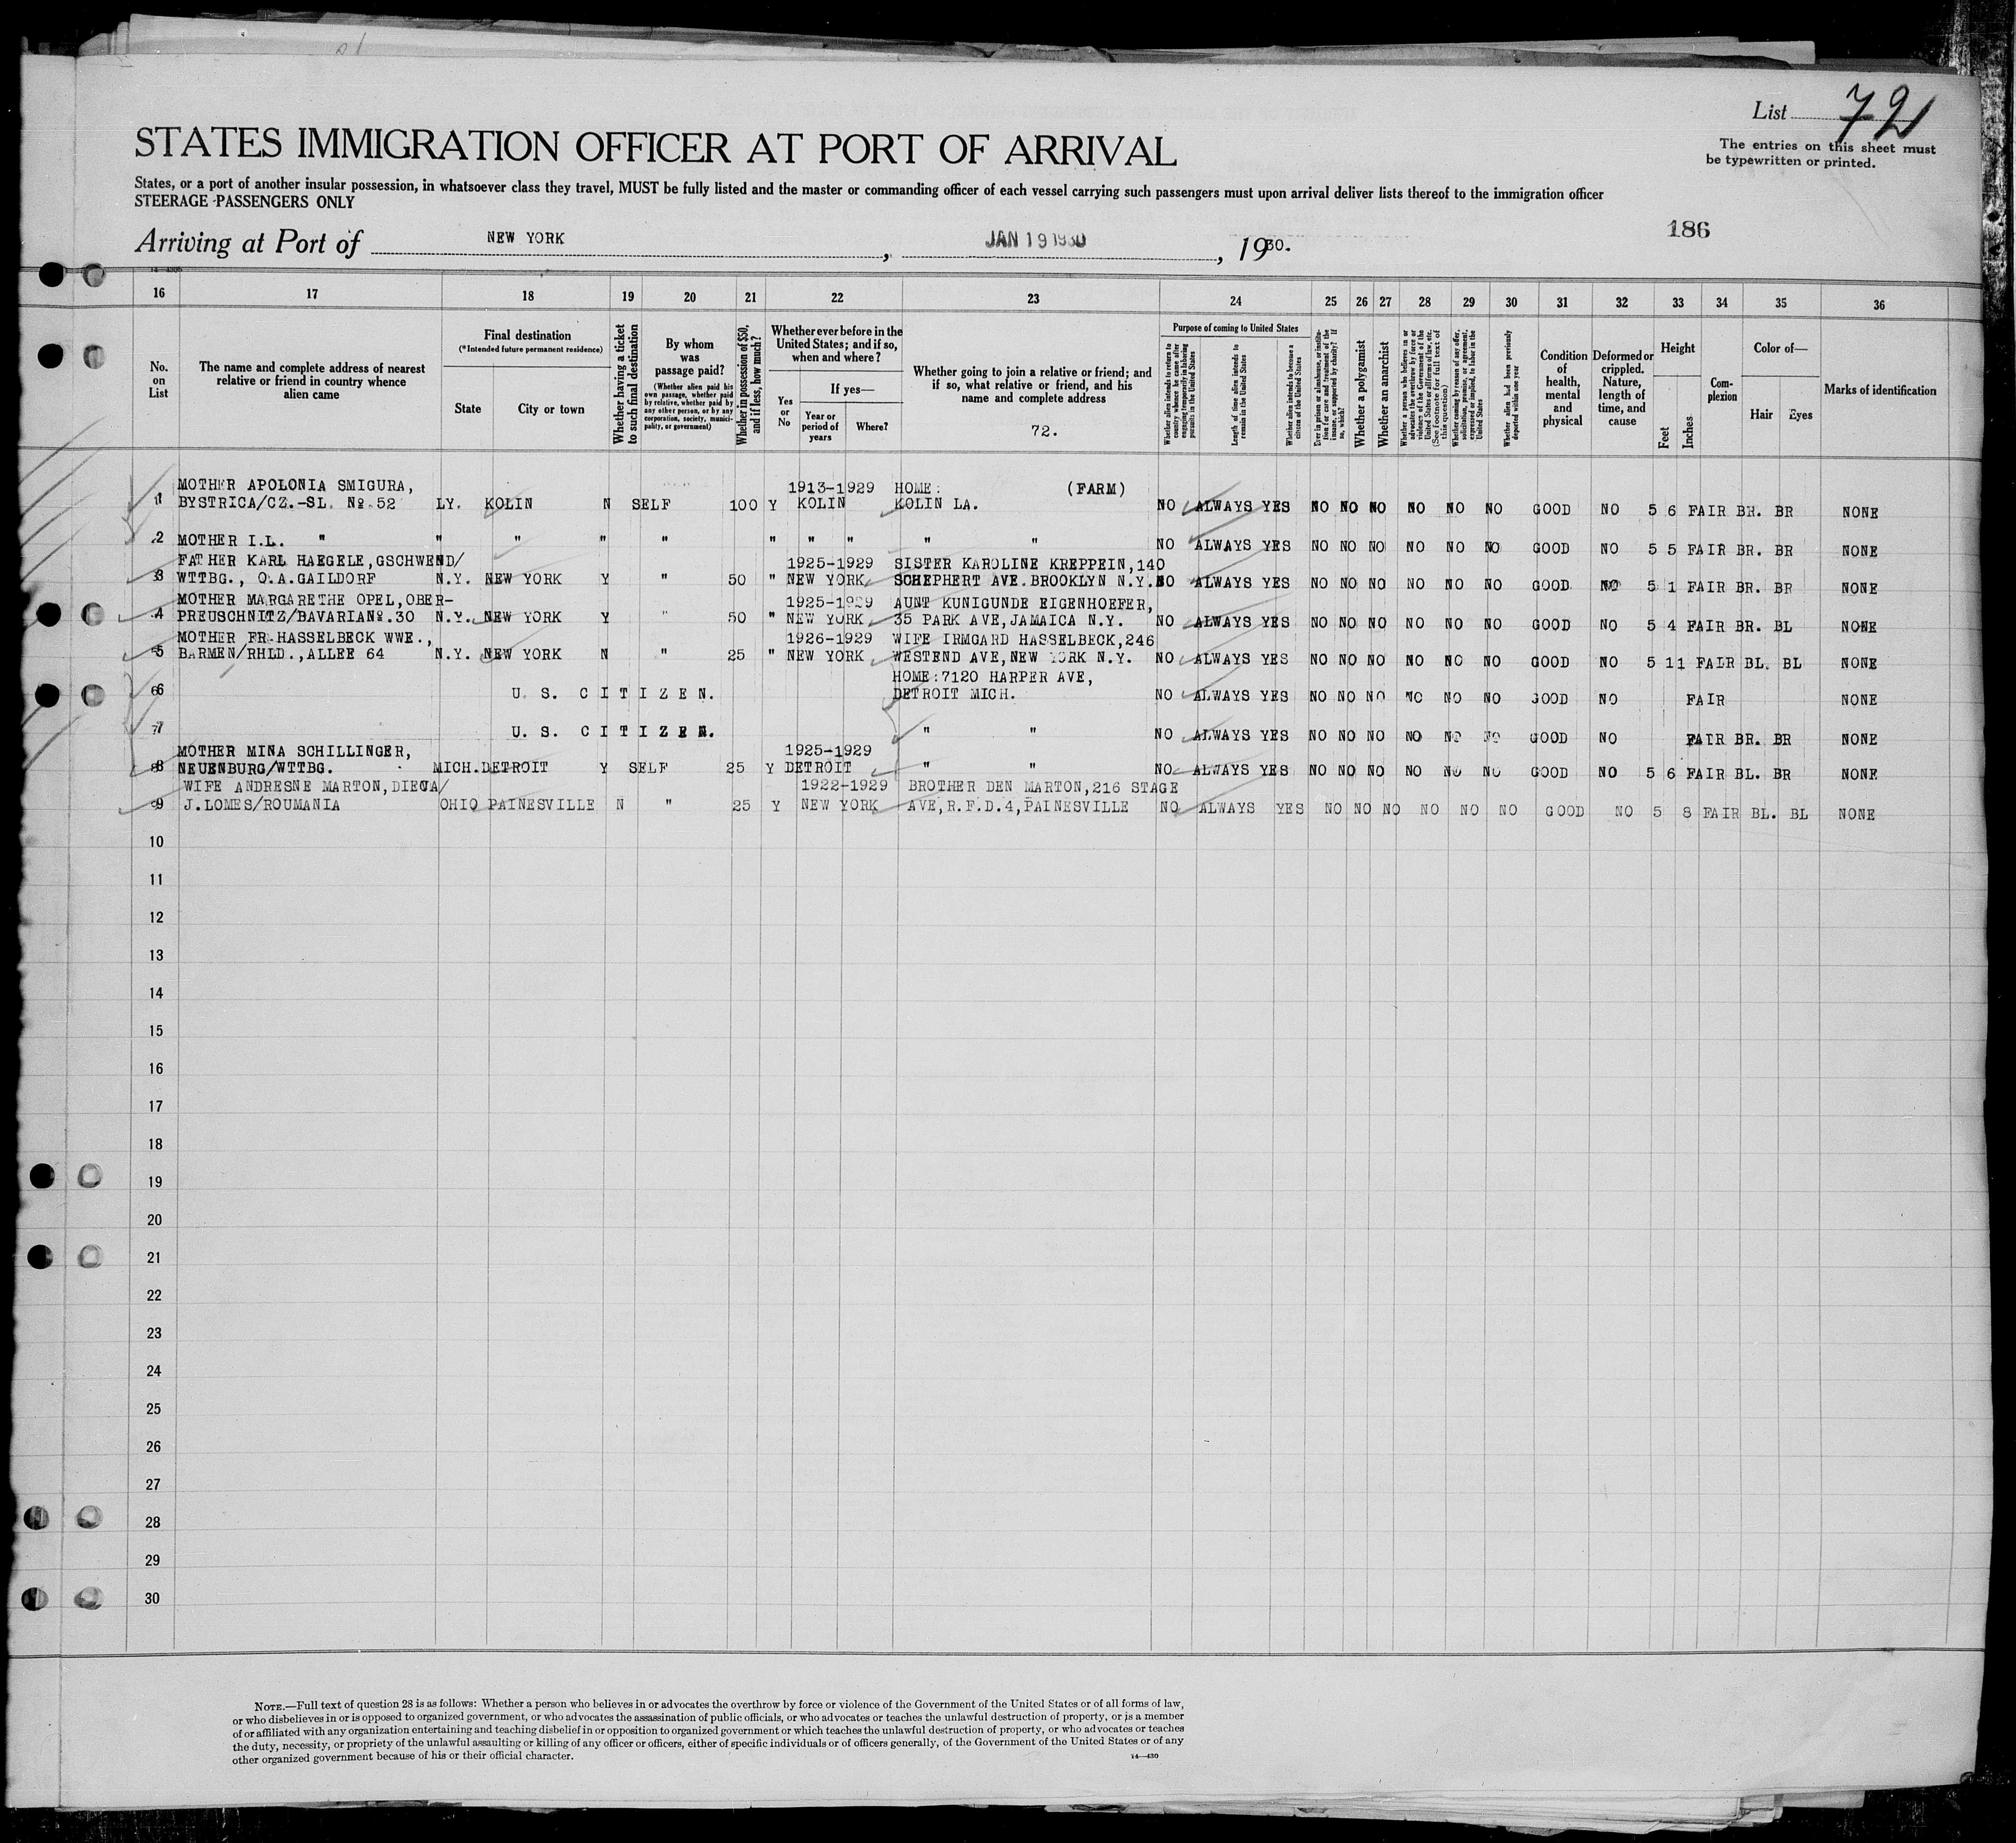 List 72
The entries on this sheet must
be typewritten or printed.
STATES IMMIGRATION OFFICER AT PORT OF ARRIVAL
States, or a port of another insular possession, in whatsoever class they travel, MUST be fully listed and the master or commanding officer of each vessel carrying such passengers must upon arrival deliver lists thereof to the immigration officer
STEERAGE PASSENGERS ONLY
186
Arriving at Port of NEW YORK, JAN 19 1930, 1930.
16 17 18 19 20 21 22 23 24 25 26 27 28 29 30 31 32 33 34 35 36
No. on List
The name and complete address of nearest relative or friend in country whence alien came
Final destination
(*Intended future permanent residence)
State
City or town
Whether having a ticket to such final destination
By whom was passage paid?
(Whether alien paid his own passage, whether paid by relative, whether paid by any other person, or by any corporation, society, municipality, or government)
Whether in possession of $50, and if less, how much?
Whether ever before in the United States; and if so, when and where?
Yes or No
If yes—
Year or period of years
Where?
Whether going to join a relative or friend; and if so, what relative or friend, and his name and complete address
72.
Purpose of coming to United States
Whether alien intends to return to country whence he came after engaging temporarily in laboring pursuits in the United States
Length of time alien intends to remain in the United States
Whether alien intends to become a citizen of the United States
Ever in prison or almshouse, or institution for care and treatment of the insane, or supported by charity? If so, which?
Whether a polygamist
Whether an anarchist
Whether a person who believes in or advocates the overthrow by force or violence of the Government of the United States or all forms of law, etc. (See footnote for full text of this question)
Whether coming by reason of any offer, solicitation, promise, or agreement, expressed or implied, to labor in the United States
Whether alien had been previously deported within one year
Condition of health, mental and physical
Deformed or crippled. Nature, length of time, and cause
Height
Feet
Inches
Complexion
Color of—
Hair
Eyes
Marks of identification
MOTHER APOLONIA SMIGURA, 1913-1929 HOME: (FARM)
1 BYSTRICA/CZ.-SL. No.52 LY. KOLIN N SELF 100 Y KOLIN KOLIN LA. NO ALWAYS YES NO NO NO NO NO NO GOOD NO 5 6 FAIR BR. BR NONE
2 MOTHER I.L. " " " " " " " " " " NO ALWAYS YES NO NO NO NO NO NO GOOD NO 5 5 FAIR BR. BR NONE
FATHER KARL HAEGELE,GSCHWEND/ 1925-1929 SISTER KAROLINE KREPPEIN,140
3 WTTBG., O.A.GAILDORF N.Y. NEW YORK Y " 50 " NEW YORK SCHEPHERT AVE.BROOKLYN N.Y. NO ALWAYS YES NO NO NO NO NO NO GOOD NO 5 1 FAIR BR. BR NONE
MOTHER MARGARETHE OPEL,OBER- 1925-1929 AUNT KUNIGUNDE EIGENHOEFER,
4 PREUSCHNITZ/BAVARIA No.30 N.Y. NEW YORK Y " 50 " NEW YORK 35 PARK AVE,JAMAICA N.Y. NO ALWAYS YES NO NO NO NO NO NO GOOD NO 5 4 FAIR BR. BL NONE
MOTHER FR.HASSELBECK WWE., 1926-1929 WIFE IRMGARD HASSELBECK,246
5 BARMEN/RHLD.,ALLEE 64 N.Y. NEW YORK N " 25 " NEW YORK WESTEND AVE,NEW YORK N.Y. NO ALWAYS YES NO NO NO NO NO NO GOOD NO 5 11 FAIR BL. BL NONE
HOME:7120 HARPER AVE,
6 U. S. C I T I Z E N. DETROIT MICH. NO ALWAYS YES NO NO NO NO NO NO GOOD NO FAIR NONE
7 U. S. C I T I Z E N. " " NO ALWAYS YES NO NO NO NO NO NO GOOD NO FAIR BR. BR NONE
MOTHER MINA SCHILLINGER, 1925-1929
8 NEUENBURG/WTTBG. MICH.DETROIT Y SELF 25 Y DETROIT " " NO ALWAYS YES NO NO NO NO NO NO GOOD NO 5 6 FAIR BL. BR NONE
WIFE ANDRESNE MARTON,/ 1922-1929 BROTHER DEN MARTON,216 STAGE
9 J.LOMES/ROUMANIA OHIO PAINESVILLE N " 25 Y NEW YORK AVE,R.F.D.4,PAINESVILLE NO ALWAYS YES NO NO NO NO NO NO GOOD NO 5 8 FAIR BL. BL NONE
10
11
12
13
14
15
16
17
18
19
20
21
22
23
24
25
26
27
28
29
30
NOTE.—Full text of question 28 is as follows: Whether a person who believes in or advocates the overthrow by force or violence of the Government of the United States or of all forms of law,
or who disbelieves in or is opposed to organized government, or who advocates the assassination of public officials, or who advocates or teaches the unlawful destruction of property, or is a member
of or affiliated with any organization entertaining and teaching disbelief in or opposition to organized government or which teaches the unlawful destruction of property, or who advocates or teaches
the duty, necessity, or propriety of the unlawful assaulting or killing of any officer or officers, either of specific individuals or of officers generally, of the Government of the United States or of any
other organized government because of his or their official character.
14—430